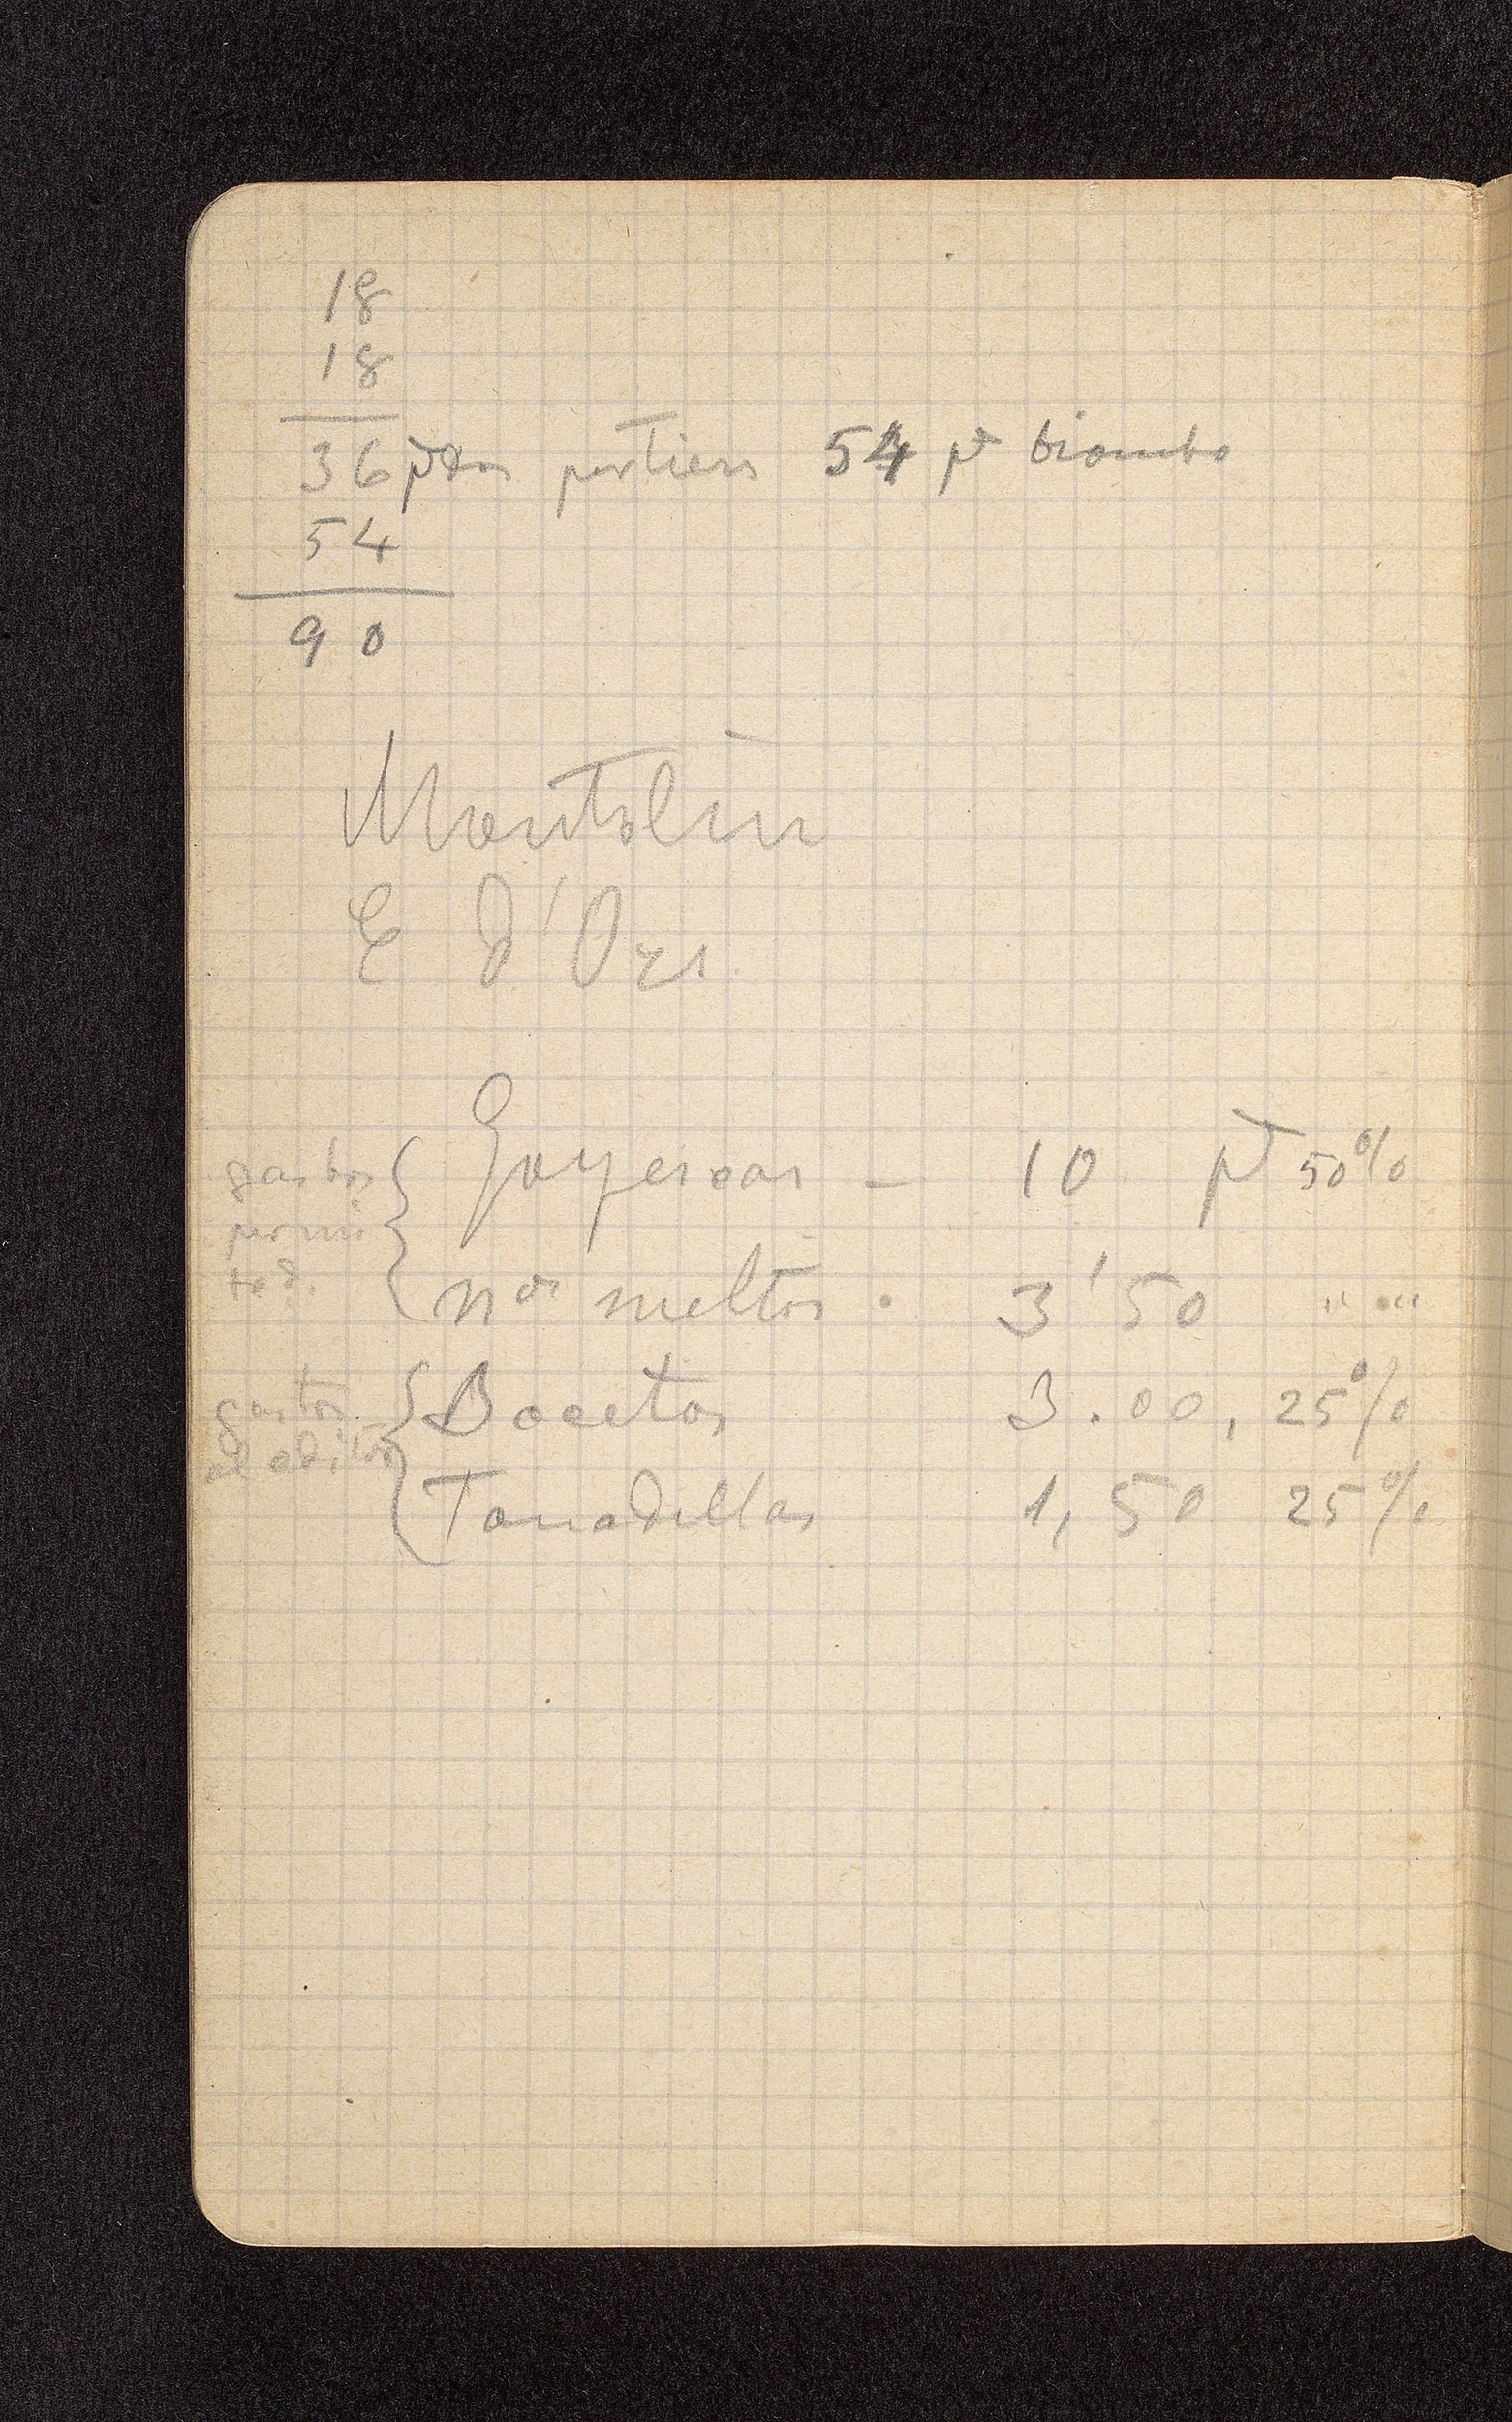 18
18
36 ptas portiers 54 pts biombo
54
90
Montoliu
E d'Ors
gastos por mitad.
Goyescas - 10 pts 50%
nos sueltos . 3'50 " "
gastos al editor
Bocetos 3.00, 25%
Tonadillas 1,50 25%